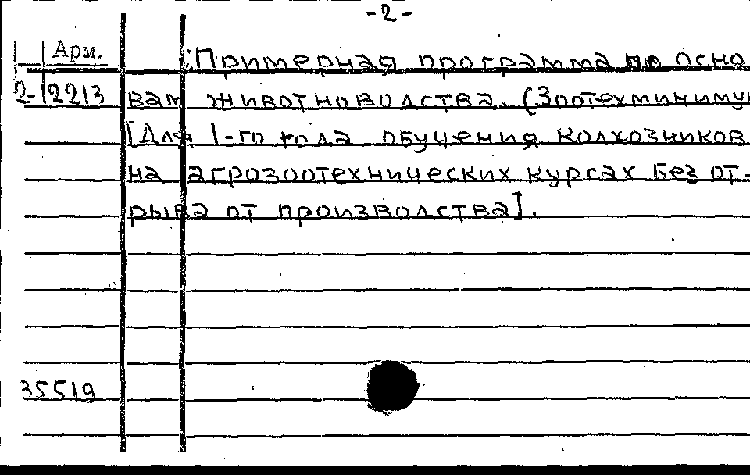 -2-
Арм. :Примерная программа по осно
2-2213 вам животноводства. (Зоотехминиму
[Для 1-го года обучения колхозников
на агрозоотехнических курсах без от-
рыва от производства].
35519